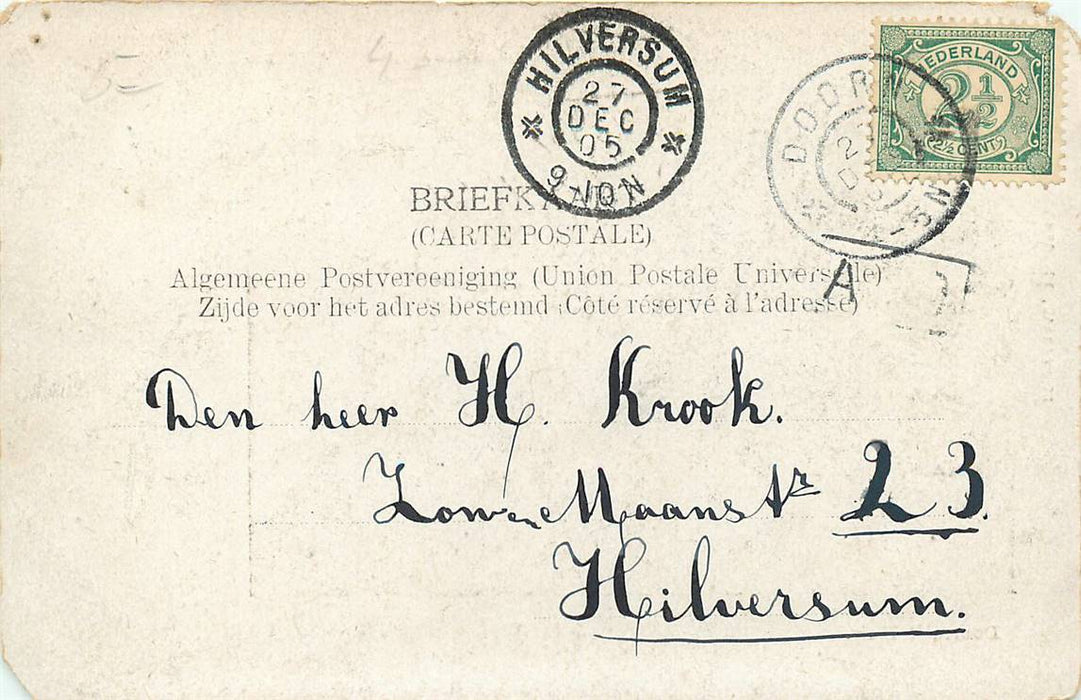 5=
4
HILVERSUM
27
DEC
05
9-10N
DOORN
2
D
-5N
NEDERLAND
2½
2½ CENT
BRIEFKAART
(CARTE POSTALE)
Algemeene Postvereeniging (Union Postale Universelle)
Zijde voor het adres bestemd (Côté réservé à l'adresse)
A
Den heer H. Krook.
Zon en Maanstr 23.
Hilversum.